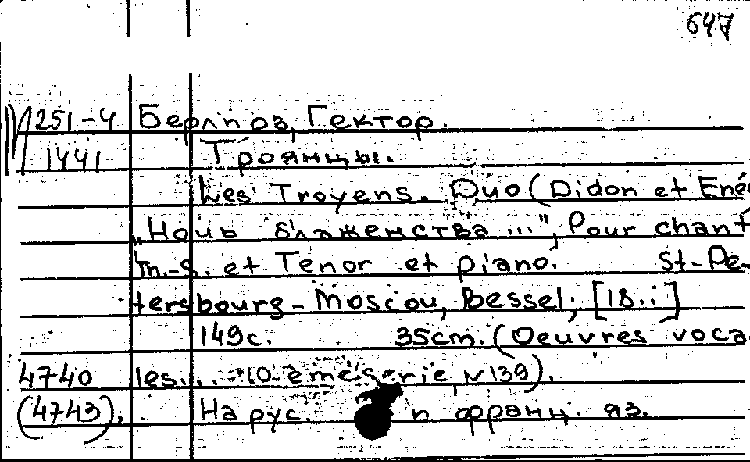 647
251-4 Берлиоз, Гектор.
1441 Троянцы.
Les Troyens. Duo (Didon et Enée
„Ночь блаженства...", Pour chant
m.-s. et Tenor et piano. St-Pe-
tersbourg-Moscou, Bessel, [18..]
149с. 35cm. (Oeuvres voca-
4740 les... 10-ème serie, N 139).
(4743). На рус. и франц. яз.